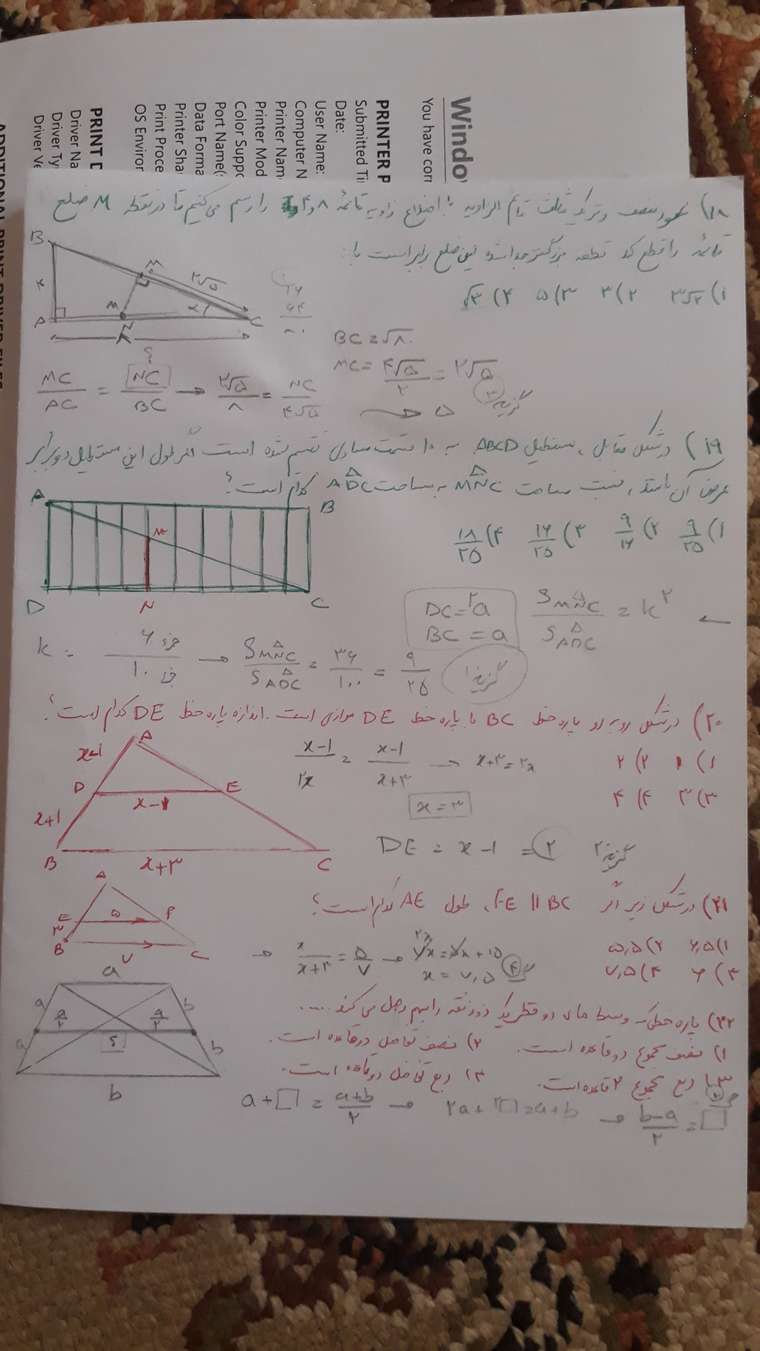 Windo
You have corr
PRINTER P
Submitted Ti
Date:
User Name:
Computer N
Printer Nam
Printer Mod
Color Suppo
Port Name(
Data Forma
Printer Sha
Print Proce
OS Environ
PRINT D
Driver Na
Driver Ty
Driver Ve
ADDITIONAL PRINT DRIVER FILES
۱۸) عمود منصف وتر یک مثلث قائم الزاویه با اضلاع زاویه قائمه ۸ و ۴ را رسم می‌کنیم تا در نقطه M ضلع
قائمه را قطع کند قطعه بزرگتر جدا شده این ضلع برابر است با:
۱) ۳√۲ ۲) ۳ ۳) ۵ ۴) √۳
B
M
۲√۵
A
N
C
BC = √۸۰
MC = ۴√۵/۲ = ۲√۵
MC/AC = NC/BC → ۲√۵/۸ = NC/۴√۵
۵
گزینه ۳
۱۹) در شکل مقابل، مستطیل ABCD به ۱۰ قسمت مساوی تقسیم شده است اگر طول این مستطیل دو برابر
عرض آن باشد، نسبت مساحت MNC به مساحت ADC کدام است؟
۱) ۹/۲۵ ۲) ۹/۱۶ ۳) ۱۶/۲۵ ۴) ۱۸/۲۵
A
B
M
D
N
C
DC = ۲a
BC = a
S MNC / S ADC = k²
k = ۶/۱۰ → S MNC / S ADC = ۳۶/۱۰۰ = ۹/۲۵
گزینه ۱
۲۰) در شکل روبه رو پاره خط BC با پاره خط DE موازی است. اندازه پاره خط DE کدام است؟
۱) ۱ ۲) ۲
۳) ۳ ۴) ۴
A
x-1
D
x-1
E
x+1
B
x+۳
C
x-1/۲x = x-1/x+۳ → x+۳=۲x
x=۳
DE = x-1 = ۲
گزینه ۲
۲۱) در شکل زیر اگر FE || BC، طول AE کدام است؟
۱) ۶,۵ ۲) ۵,۵
۳) ۶ ۴) ۷,۵
A
E
۵
F
۳
B
۷
C
x/x+۳ = ۵/۷ → ۷x = ۵x + ۱۵
x = ۷,۵
۲۲) پاره خطی که وسط های دو قطر یک ذوزنقه را بهم وصل می کند .....
۱) نصف مجموع دو قاعده است. ۲) نصف تفاضل دو قاعده است.
۳) ربع مجموع ۲ قاعده است. ۴) ربع تفاضل دو قاعده است.
a
a
b
a/۲
a/۲
a
b
b
a + □ = a+b/۲ → ۲a + ۲□ = a+b → b-a/۲ = □